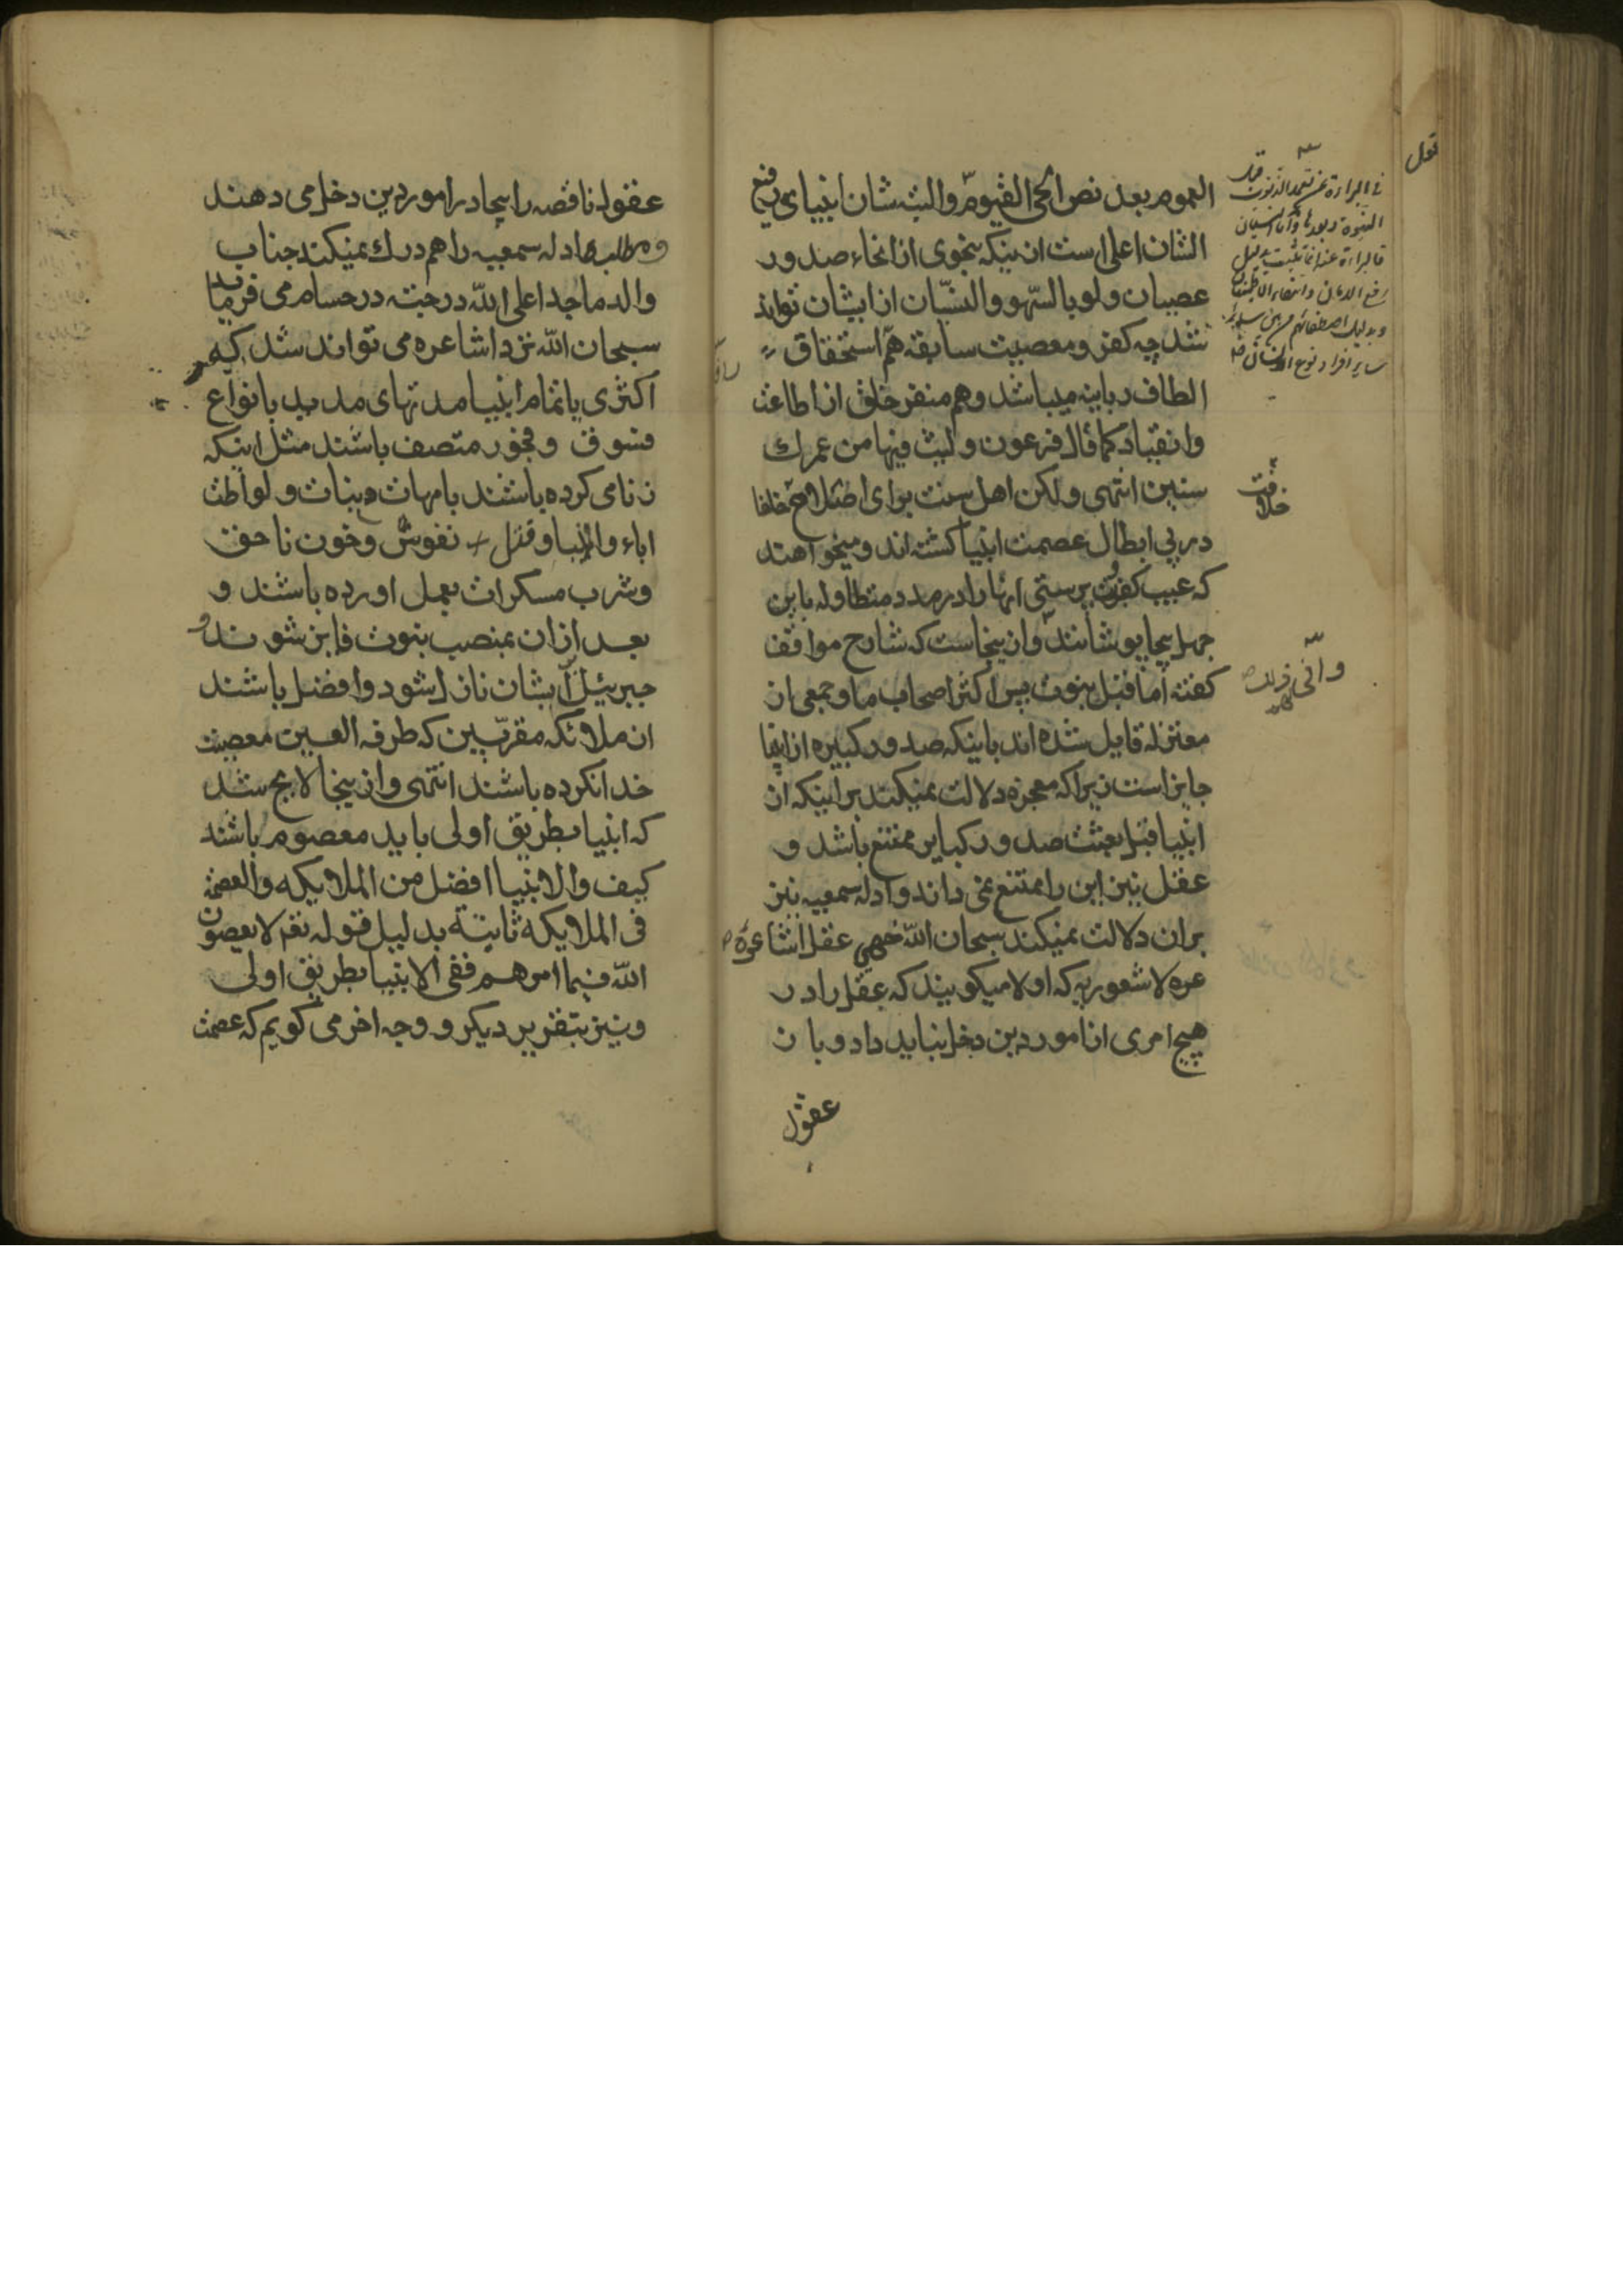 العموم بعد نص الحی القیوم والبته شان انبیای رفیع
الشان اعلی است از ینکه بنحوی از انحاء صدور
عصیان ولو بالسهو والنسیان از ایشان تواند
شد چه کفر و معصیت سابقه هم استحقاق
الطاف ربانیه میباشد وهم منفر خلق از اطاعت
وانقیاد کما قال فرعون ولبثت فینا من عمرک
سنین انتهی ولکن اهل سنت برای خلفا
در پی ابطال عصمت انبیا کشته اند ومیخواهند
که عیب کفر وبت پرستی انها را در مدد متطاوله باین
جهل بیجا پوشانند وازینجاست که شارح مواقف
کفته اما قبل نبوت پس اکثر اصحاب ما وجمعی از
معتزله قایل شده اند باینکه صدور کبیره از انبیا
جایز است زیرا که معجزه دلالت نمیکند بر اینکه از
انبیا قبل بعثت صدور کبایر ممتنع باشد و
عقل نیز این را ممتنع نمی داند وادله سمعیه نیز
بران دلالت نمیکند سبحان الله خهی عقل اشاعره
عره لا شعوریه که اولا میکویند که عقل را در
هیچ امری از امور دین دخل نباید داد وبا ن
عقول
خلافت
عقول ناقصه را بیجا در امور دین دخل می دهند
ومطلب ادله سمعیه را هم درک نمیکند جناب
والد ماجد اعلی الله درجته در حسام می فرماید
سبحان الله نزد اشاعره می تواند شد که
اکثری یا تمام انبیا مدتهای مدید بانواع
فسوق وفجور متصف باشند مثل اینکه
زنا می کرده باشند بامهات وبنات ولواطت
اباء وابنا وقتل نفوس وخون ناحق
وشرب مسکرات بعمل اورده باشند و
بعد ازان بمنصب نبوت فایز شوند و
جبرئیل بر ایشان نازل شود وافضل باشند
از ملائکه مقربین که طرفه العین معصیت
خدا نکرده باشند انتهی وازینجا لایح شد
که انبیا بطریق اولی باید معصوم باشند
کیف والانبیا افضل من الملایکه والعصمة
فی الملایکه ثابتة بدلیل قوله تعم لا یعصون
الله فیما امرهم ففی الانبیا بطریق اولی
ونیز بتقریر دیکر ووجه اخر می کویم که عصمت